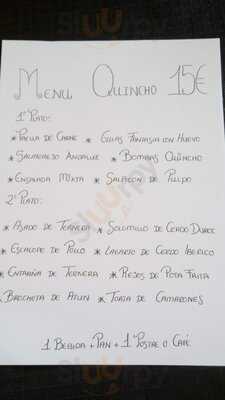 Menu Quincho 15€
1º Plato:
* Paella de Carne * Gulas Fantasia con Huevo
* Salmorejo Andaluz * Bombas Quincho
* Ensalada Mixta * Salpicon de Pulpo
2º Plato:
* Asado de Ternera * Solomillo de Cerdo Duroc
* Escalope de Pollo * Lagarto de Cerdo Iberico
* Entraña de Ternera * Rejos de Pota Frita
* Brocheta de Atun * Torta de Camarones
1 Bebida + Pan + 1 Postre o Café